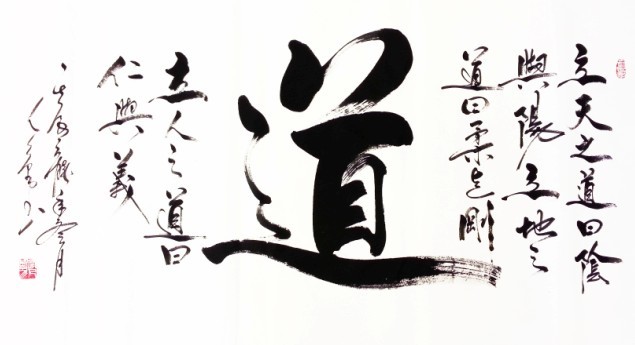 立天之道曰陰
與陽立地之
道曰柔与剛
道
立人之道曰
仁與義